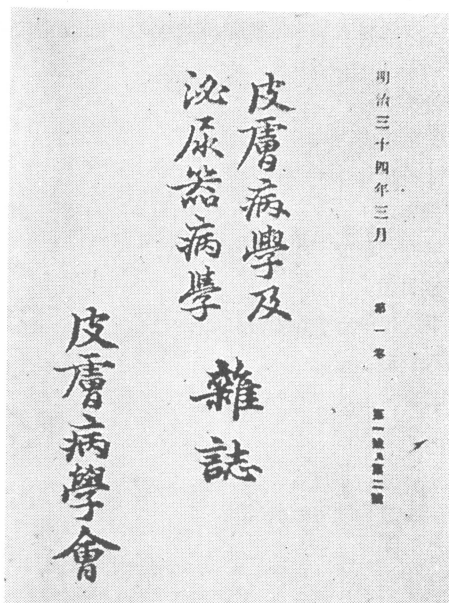 明治三十四年三月 第一卷 第一號及第二號
皮膚病學及
泌尿器病學
雜誌
皮膚病學會